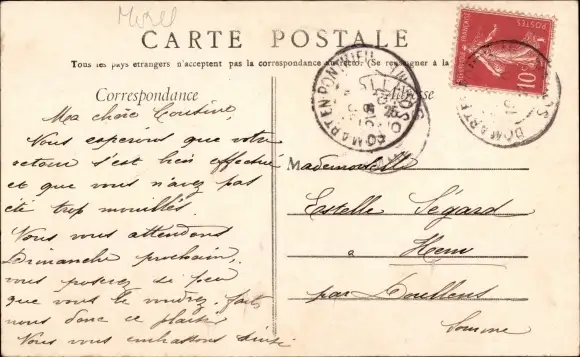 Morel
CARTE POSTALE
Tous les pays étrangers n'acceptent pas la correspondance au recto. (Se renseigner à la
Correspondance
Adresse
Ma chère Cousine,
Nous espérons que votre
retour s'est bien effectué
et que vous n'avez pas
été trop mouillés.
Nous vous attendons
Dimanche prochain,
vous pouvez si peu
que vous le voudrez, faites
nous donc ce plaisir
Nous vous embrassons
Mademoiselle
Estelle Ségard
a Hem
par Doullens
Somme
DOMART EN PONTHIEU
SOMME
REPUBLIQUE FRANÇAISE
POSTES
10